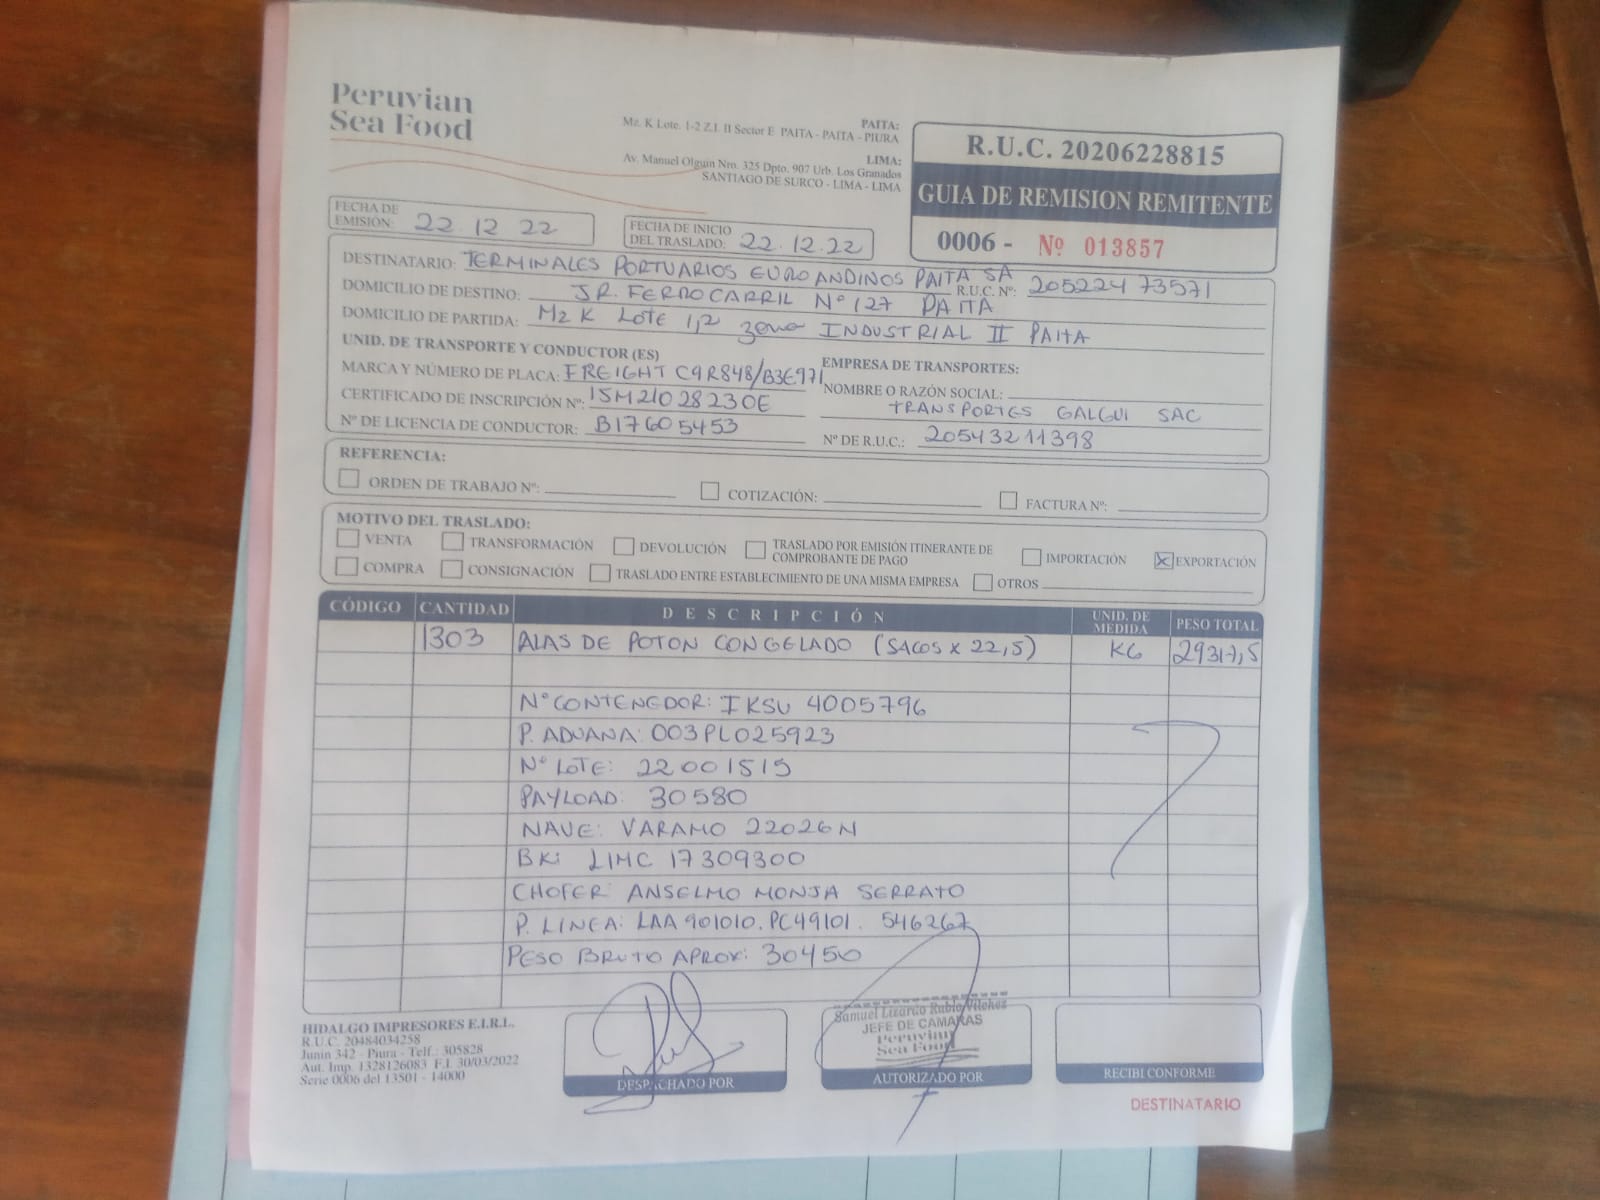 Peruvian
Sea Food
PAITA:
Mz. K Lote. 1-2 Z.I. II Sector E PAITA - PAITA - PIURA
LIMA:
Av. Manuel Olguin Nro. 325 Dpto. 907 Urb. Los Granados
SANTIAGO DE SURCO - LIMA - LIMA
R.U.C. 20206228815
GUIA DE REMISION REMITENTE
0006 - Nº 013857
FECHA DE EMISIÓN: 22 12 22
FECHA DE INICIO DEL TRASLADO: 22.12.22
DESTINATARIO: TERMINALES PORTUARIOS EUROANDINOS PAITA SA R.U.C. Nº: 20522473571
DOMICILIO DE DESTINO: JR. FERROCARRIL Nº 127 PAITA
DOMICILIO DE PARTIDA: Mz K LOTE 1,2 zona INDUSTRIAL II PAITA
UNID. DE TRANSPORTE Y CONDUCTOR (ES)
MARCA Y NÚMERO DE PLACA: FREIGHT C9R848/B3E971
CERTIFICADO DE INSCRIPCIÓN Nº: 15M21028230E
Nº DE LICENCIA DE CONDUCTOR: B17605453
EMPRESA DE TRANSPORTES:
NOMBRE O RAZÓN SOCIAL:
TRANSPORTES GALGUI SAC
Nº DE R.U.C.: 20543211398
REFERENCIA:
ORDEN DE TRABAJO Nº: COTIZACIÓN: FACTURA Nº:
MOTIVO DEL TRASLADO:
VENTA TRANSFORMACIÓN DEVOLUCIÓN TRASLADO POR EMISIÓN ITINERANTE DE COMPROBANTE DE PAGO IMPORTACIÓN X EXPORTACIÓN
COMPRA CONSIGNACIÓN TRASLADO ENTRE ESTABLECIMIENTO DE UNA MISMA EMPRESA OTROS
CÓDIGO CANTIDAD DESCRIPCIÓN UNID. DE MEDIDA PESO TOTAL
1303 ALAS DE POTON CONGELADO (SACOS x 22,5) KG 29317,5
Nº CONTENEDOR: IKSU 4005796
P. ADUANA: 003PL025923
Nº LOTE: 22001515
PAYLOAD: 30580
NAVE: VARAMO 22026N
BK: LIMC 17309300
CHOFER: ANSELMO MONJA SERRATO
P. LINEA: LAA901010.PC49101. 546267
PESO BRUTO APROX: 30450
HIDALGO IMPRESORES E.I.R.L.
R.U.C. 20484034258
Junin 342 - Piura - Telf.: 305828
Aut. Imp. 1328126083 F.I. 30/03/2022
Serie 0006 del 13501 - 14000
DESPACHADO POR
Samuel Lizardo Rubio Vilchez
JEFE DE CAMARAS
Peruvian
Sea Food
AUTORIZADO POR
RECIBI CONFORME
DESTINATARIO